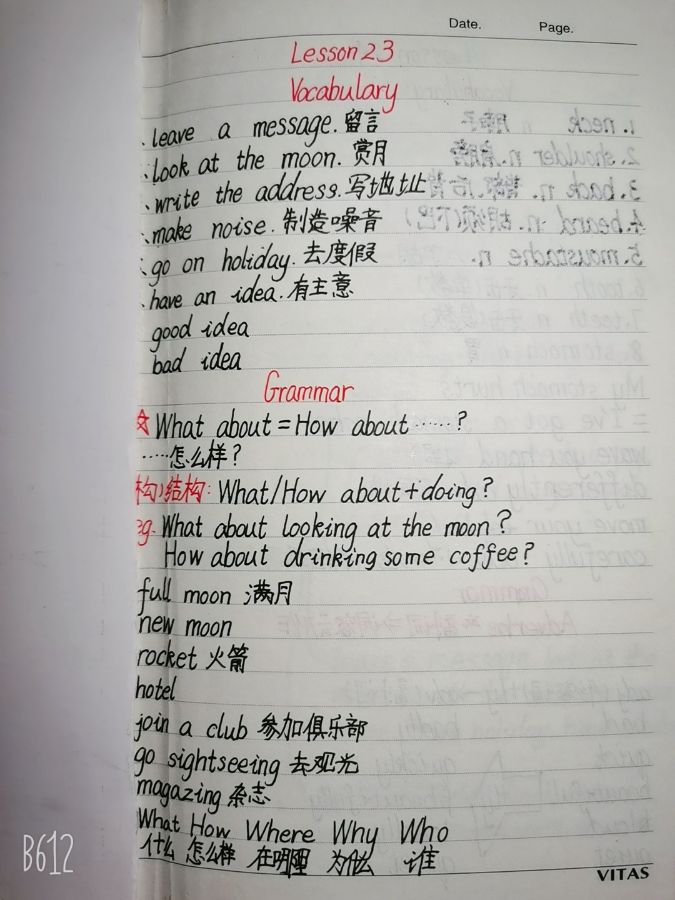 Date. Page.
Lesson 23
Vocabulary
leave a message. 留言
look at the moon. 赏月
write the address. 写地址
make noise. 制造噪音
go on holiday. 去度假
have an idea. 有主意
good idea
bad idea
Grammar
☆ What about = How about ……?
……怎么样?
构)结构: What/How about+doing?
eg. What about looking at the moon?
How about drinking some coffee?
full moon 满月
new moon
rocket 火箭
hotel
join a club 参加俱乐部
go sightseeing 去观光
magazing 杂志
What How Where Why Who
什么 怎么样 在哪里 为什么 谁
VITAS
B612